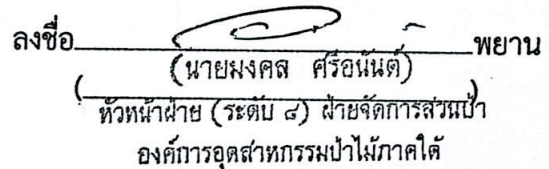 ลงชื่อ พยาน
(นายมงคล ศรีอนันต์)
( )
หัวหน้าฝ่าย (ระดับ ๘) ฝ่ายจัดการสวนป่า
องค์การอุตสาหกรรมป่าไม้ภาคใต้